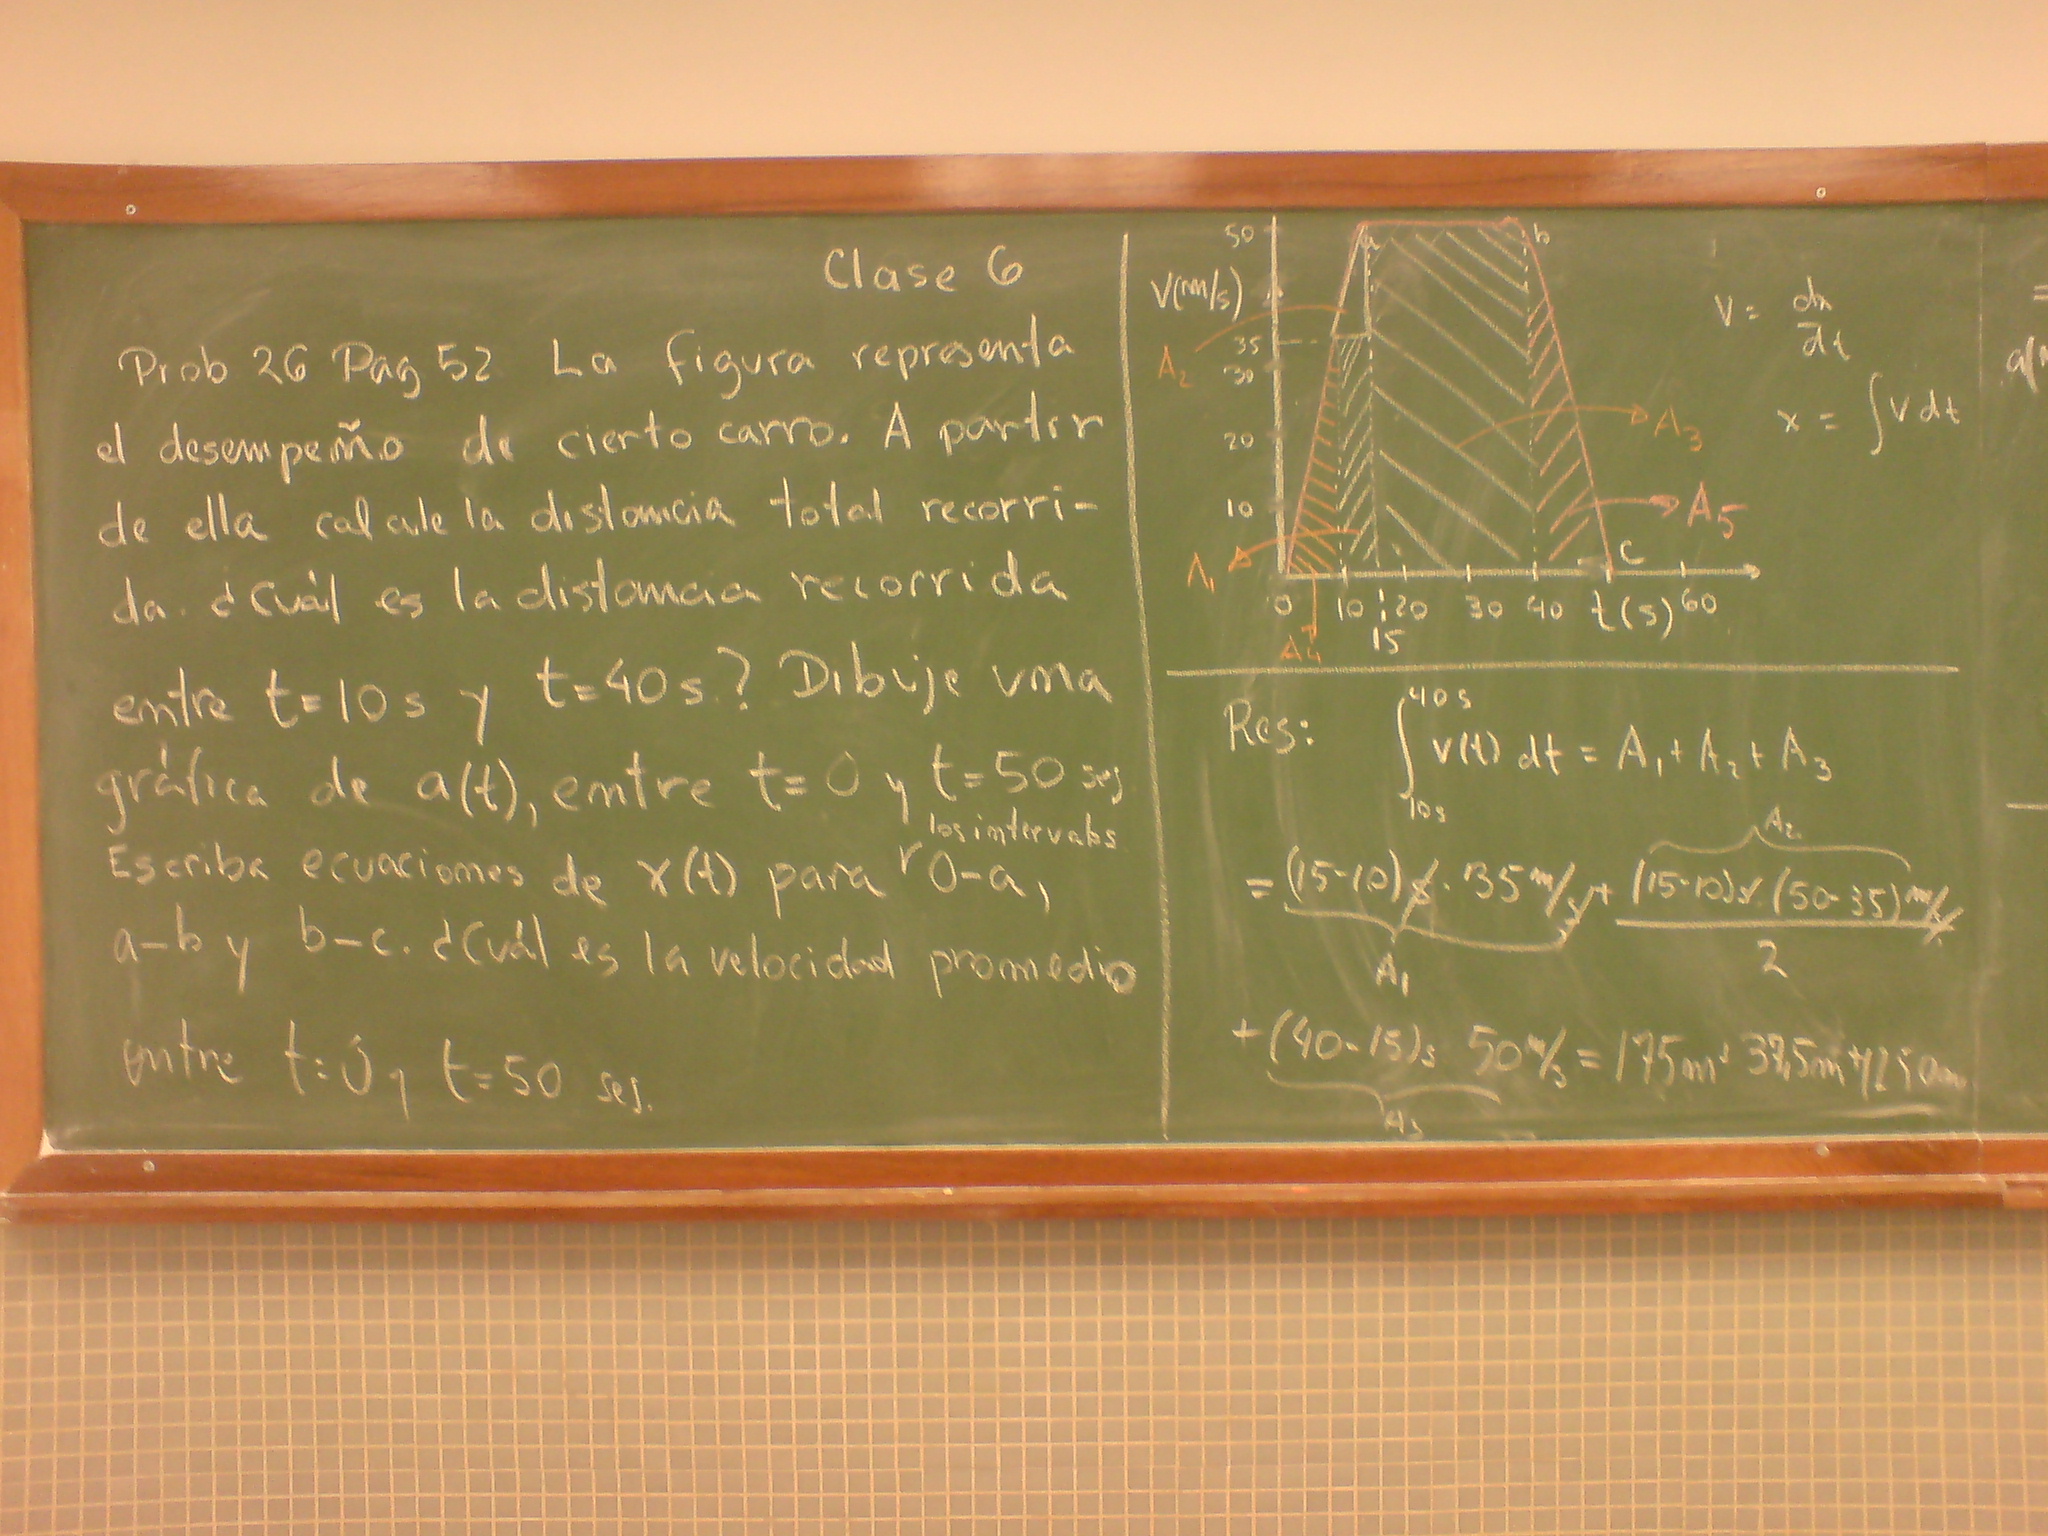 Clase 6
Prob 26 Pag 52 La figura representa
el desempeño de cierto carro. A partir
de ella calcule la distancia total recorri-
da. ¿Cuál es la distancia recorrida
entre t=10s y t=40s.? Dibuje una
gráfica de a(t), entre t=0 y t=50 seg
los intervalos
Escriba ecuaciones de x(t) para 0-a,
a-b y b-c. ¿Cuál es la velocidad promedio
entre t=0 y t=50 seg.
50
a
b
V(m/s)
35
A2
30
20
A3
10
A5
A1
c
0 10 20 30 40 t(s) 60
15
A4
V = dx
dt
x = ∫v dt
Res: ∫ 40s
v(t) dt = A1 + A2 + A3
10s
A2
= (15-10)s. 35 m/s + (15-10)s.(50-35) m/s
2
A1
+ (40-15)s 50 m/s = 175m + 37,5m + 1250m
A3